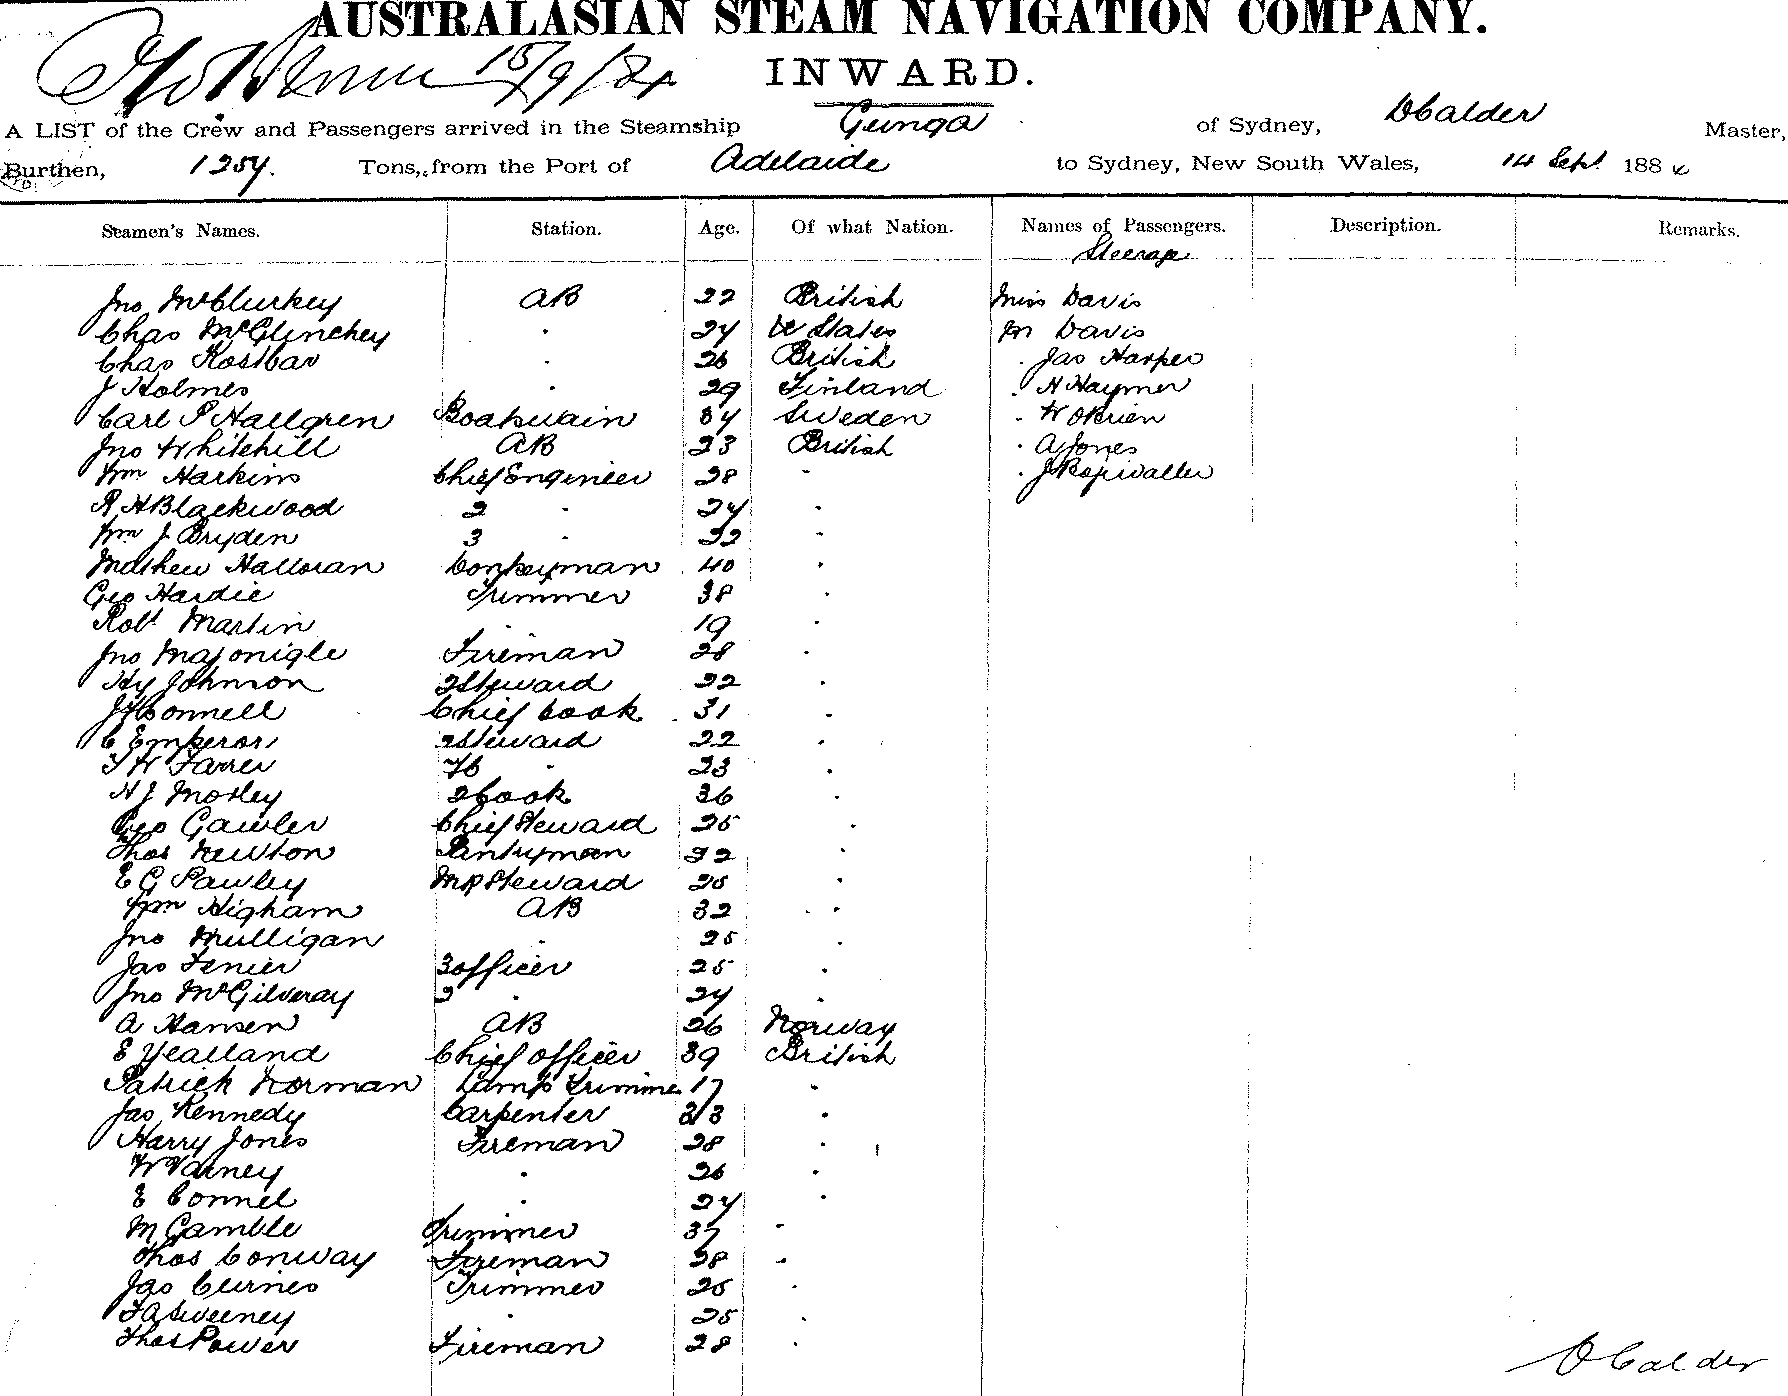 AUSTRALASIAN STEAM NAVIGATION COMPANY.
15/9/84 INWARD.
A LIST of the Crew and Passengers arrived in the Steamship Gunga of Sydney, D Calder Master,
Burthen, 1257. Tons, from the Port of Adelaide to Sydney, New South Wales, 14 Sept 1884
Seamen's Names. Station. Age. Of what Nation. Names of Passengers. Description. Remarks.
Steerage
Jno McClurkey AB 22 British Miss Davis
Chas McGlinchey " 24 U States Mr Davis
Chas Rostbar " 26 British " Jas Harper
J Holmes " 29 Finland " H Haymer
Carl P Hallgren Boatswain 34 Sweden " W OBrien
Jno Whitehill AB 23 British " A Jones
Wm Harkins Chief Engineer 28 "
R H Blackwood 2 " 24 "
Wm J Bryden 3 " 22 "
Mathew Halloran Donkeyman 40 "
Geo Hardie Trimmer 38 "
Robt Martin " 19 "
Jno Magonigle Fireman 28 "
Hy Johnson 2 Steward 22 "
J OConnell Chief Cook 31 "
C Emperor 2 Steward 22 "
T W Farrer " 23 "
H J Morley 2 Cook 36 "
Geo Gawler Chief Steward 25 "
Thos Newton Pantryman 22 "
E G Pawley Steward 25 "
Wm Higham AB 32 "
Jno Mulligan " 25 "
Jas Fenier 3 officer 25 "
Jno McGilveray 2 " 24 "
A Hansen AB 26 Norway
E Yealland Chief officer 39 British
Patrick Norman Lamp Trimmer 17 "
Jas Kennedy Carpenter 23 "
Harry Jones Fireman 28 "
W Varney " 26 "
E Connel " 24 "
M Gamble Trimmer 37 "
Thos Conway Fireman 28 "
Jas Curnes Trimmer 25 "
F A Sweeney " 25 "
Thos Power Fireman 28 "
D Calder